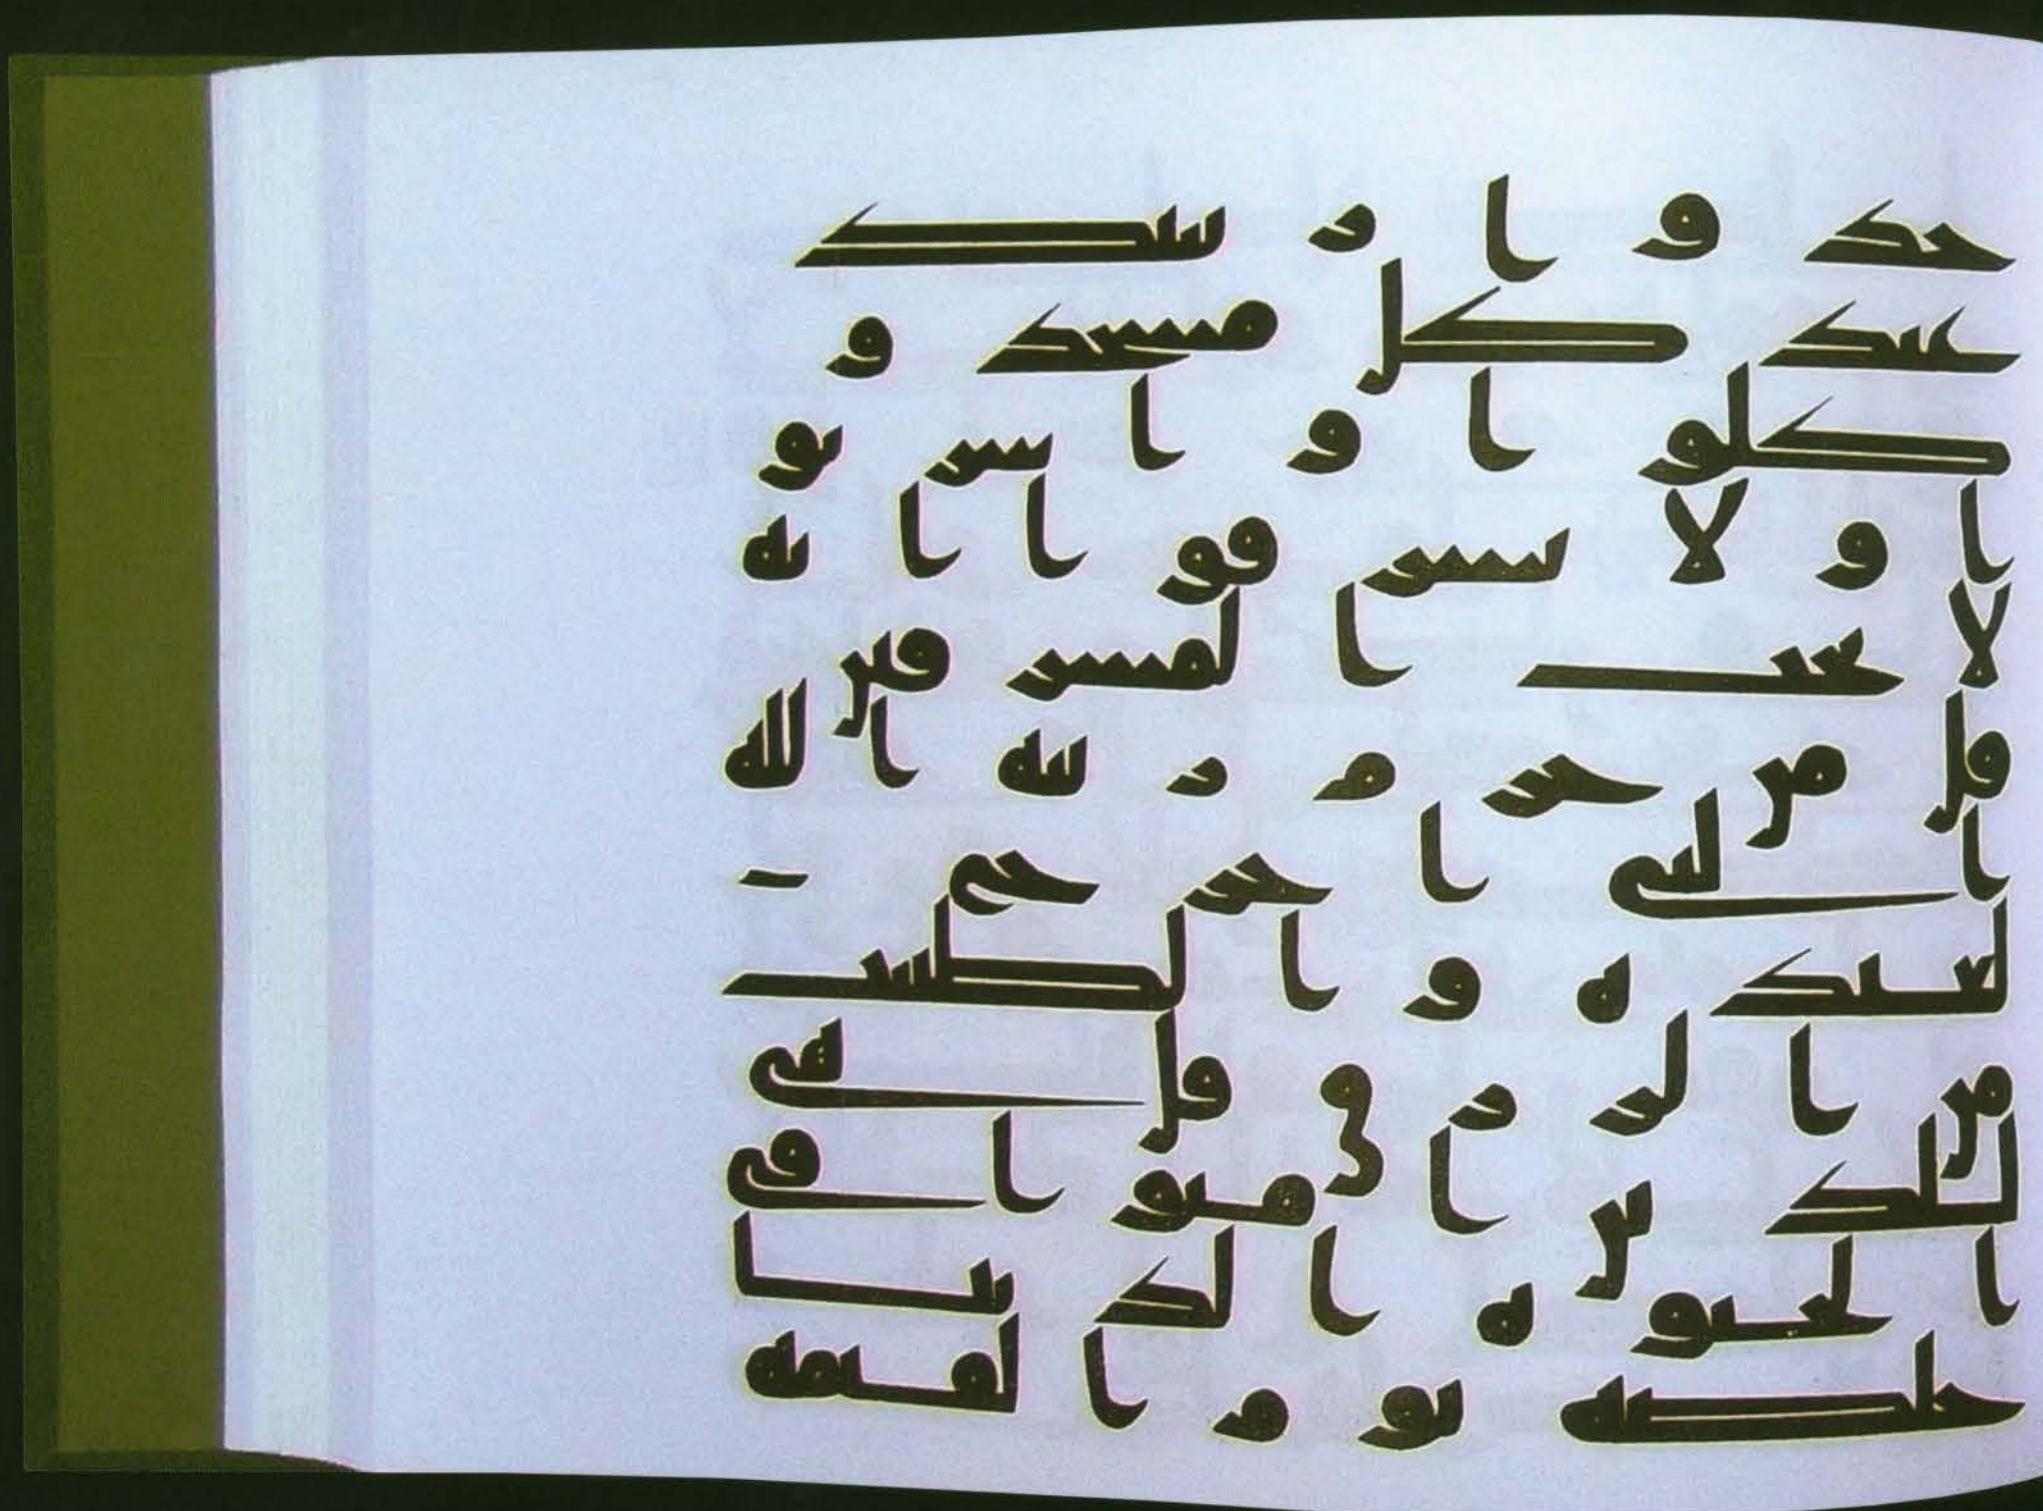 خذوا زينتك
عند كل مسجد و
كلوا واشربو
ا ولا تسرفوا انه
لا يحب المسرفين
قل من حرم زينه الله
التي اخرج
لعبده والطيبت
من الرزق قل هي
للذين امنوا في
الحيوه الدنيا
خلصه يوم القيمه